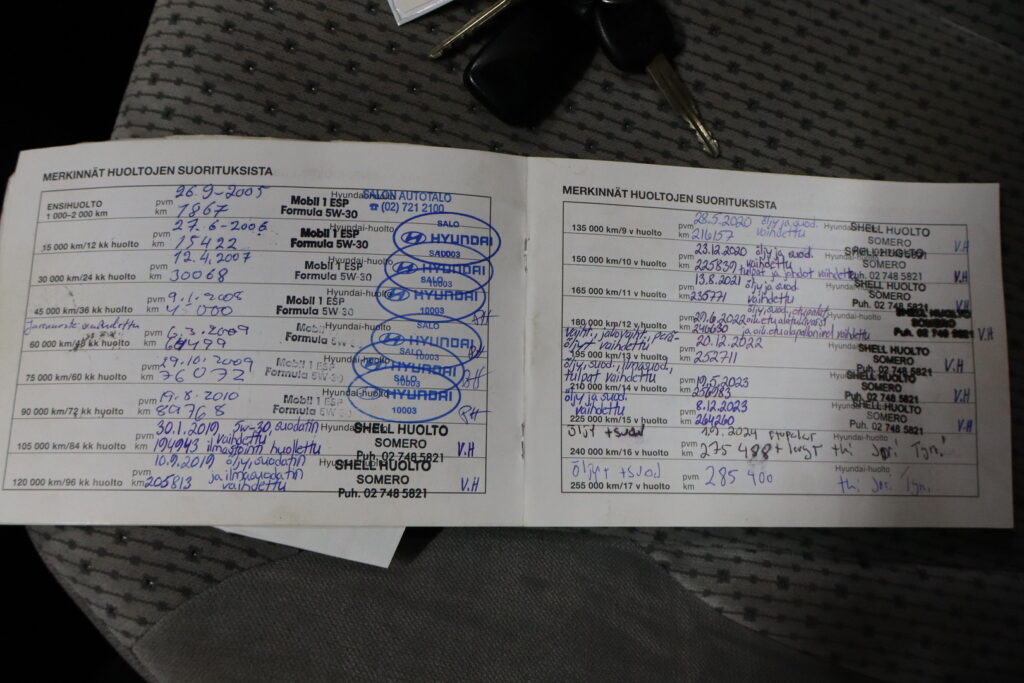 MERKINNÄT HUOLTOJEN SUORITUKSISTA
ENSIHUOLTO
1 000-2 000 km
pvm 26.9-2005
km 1867
Mobil 1 ESP
Formula 5W-30
Hyundai-huolto
SALON AUTOTALO
☎ (02) 721 2100
15 000 km/12 kk huolto
pvm 27.6-2006
km 15422
Mobil 1 ESP
Formula 5W-30
SALO
HYUNDAI
10003
30 000 km/24 kk huolto
pvm 12.4.2007
km 30068
Mobil 1 ESP
Formula 5W-30
HYUNDAI
10003
45 000 km/36 kk huolto
pvm 9.1.2008
km 45000
Mobil 1 ESP
Formula 5W-30
Hyundai-huolto
SALO
HYUNDAI
10003
RH
60 000 km/48 kk huolto
pvm 6.3.2009
km
Mobil 1 E
Formula 5W-3
Hyundai-huolto
HYUNDAI
10003
75 000 km/60 kk huolto
pvm 29.10.2009
km 76072
Mobil 1 ESP
Formula 5W-30
Hyundai-huolto
SALO
HYUNDAI
10003
90 000 km/72 kk huolto
pvm 19.8.2010
km 89768
Mobil 1 ESP
Formula 5W-30
Hyundai-huolto
SALO
HYUNDAI
10003
RH
105 000 km/84 kk huolto
pvm 30.1.2019 5w-30, suodatin vaihdettu
km 194943 ilmastoinn huollettu
SHELL HUOLTO
SOMERO
Puh. 02 748 5821
V.H
120 000 km/96 kk huolto
pvm 10.9.2019 öljy, suodatin
km 205813 ja ilmasuodatin vaihdettu
SHELL HUOLTO
SOMERO
Puh. 02 748 5821
V.H
MERKINNÄT HUOLTOJEN SUORITUKSISTA
135 000 km/9 v huolto
pvm 28.5.2020 öljy ja suod.
km 216157 vaihdettu
SHELL HUOLTO
SOMERO
V.H
150 000 km/10 v huolto
pvm 23.12.2020 öljy ja suod.
km 225839 vaihdettu
tulpat ja johdot vaihdettu
SOMERO
Puh. 02 748 5821
V.H
165 000 km/11 v huolto
pvm 13.8.2021 öljy ja suod.
km 235771 vaihdettu
SHELL HUOLTO
SOMERO
Puh. 02 748 5821
V.H
180 000 km/12 v huolto
pvm 27.6.2022
km 246630
SOMERO
Puh. 02 748 5821
V.H
öljyt vaihdettu
195 000 km/13 v huolto
pvm 20.12.2022
km 252711
öljy, suod., ilmasuod.,
tulpat vaihdettu
SHELL HUOLTO
SOMERO
Puh. 02 748 5821
V.H
210 000 km/14 v huolto
pvm 19.5.2023
km 256983
öljy ja suod.
vaihdettu
SHELL HUOLTO
SOMERO
Puh. 02 748 5821
V.H
225 000 km/15 v huolto
pvm 8.12.2023
km 264260
SHELL HUOLTO
SOMERO
Puh. 02 748 5821
V.H
öljyt +suod
240 000 km/16 v huolto
pvm 2024
km 275 488
öljyt +suod
255 000 km/17 v huolto
pvm
km 285 400
Hyundai-huolto